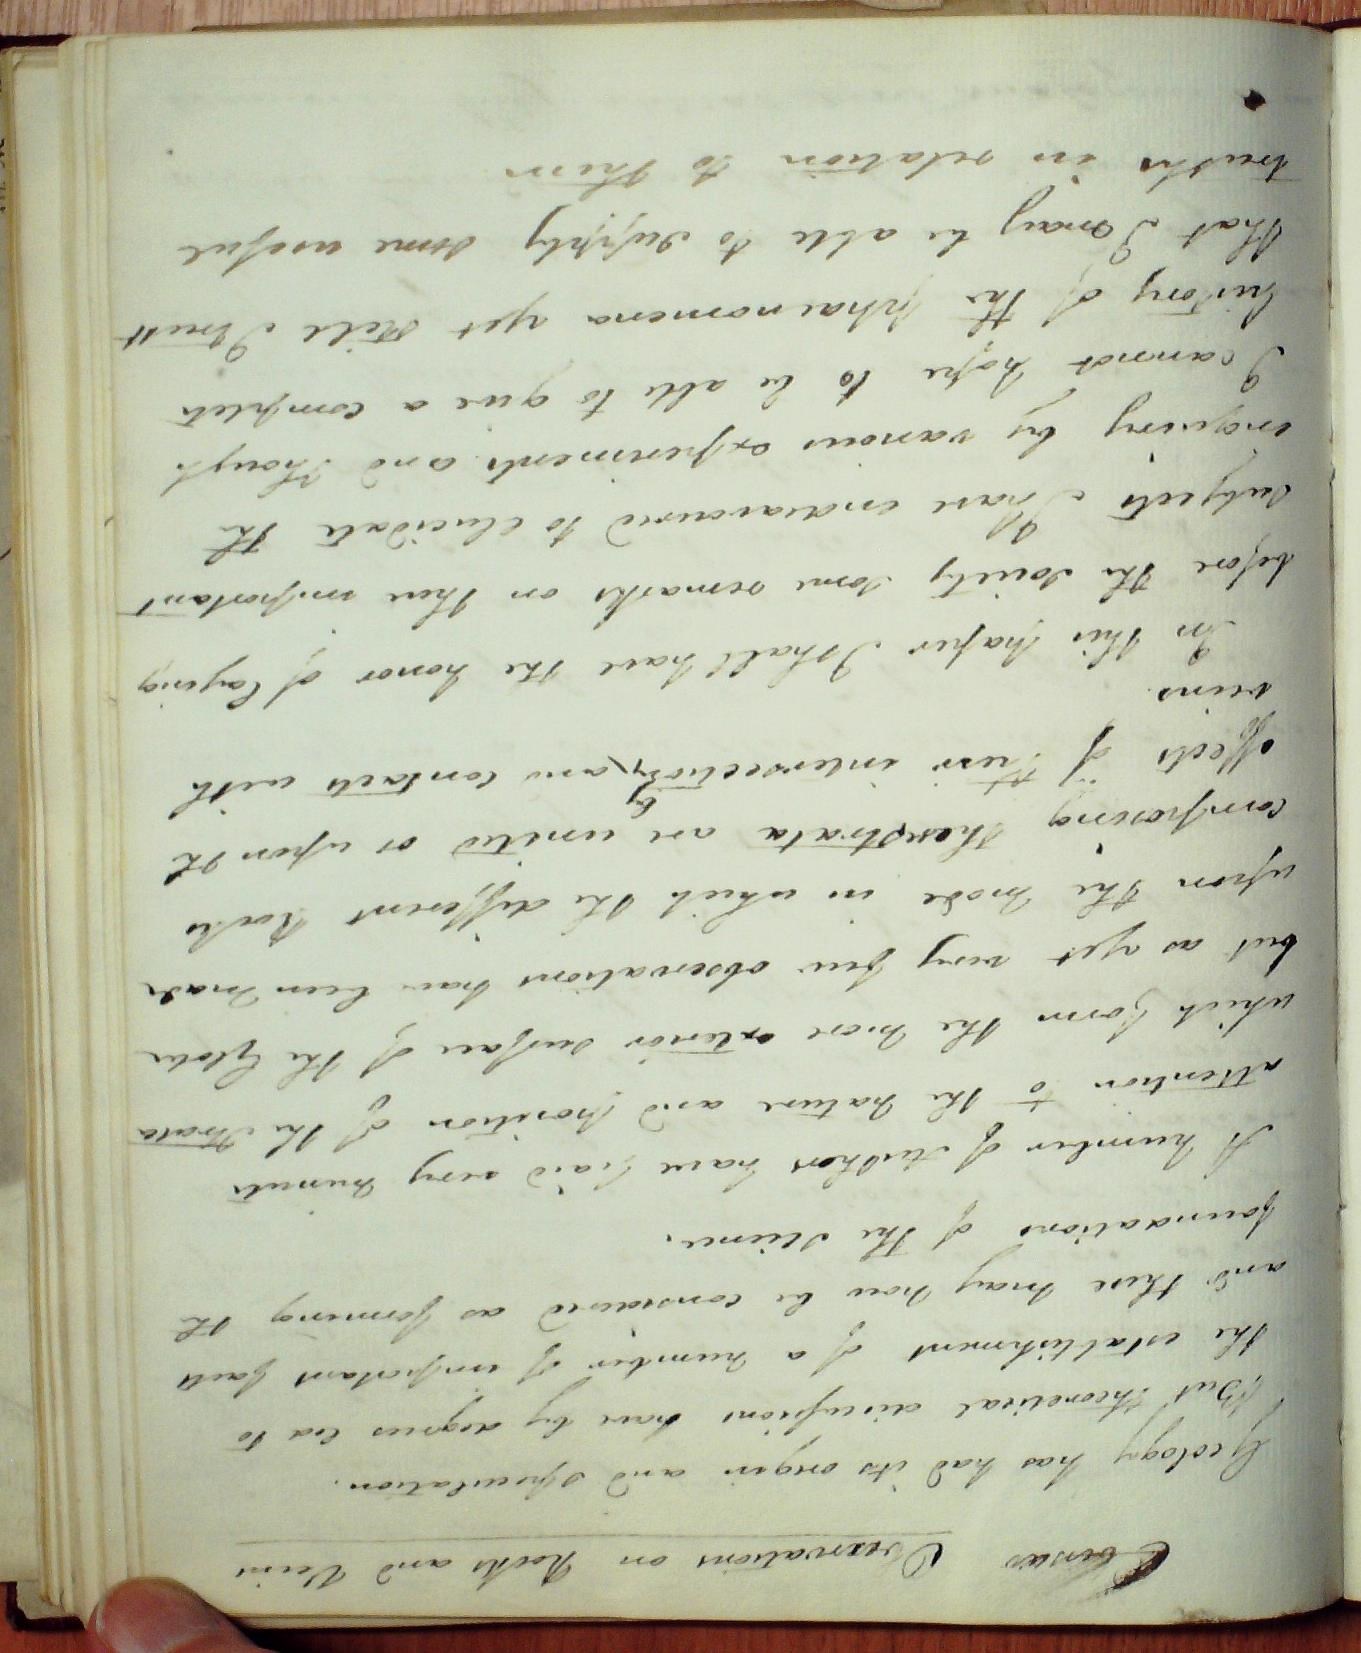 Observations on Rocks and Veins
Geology has had its origin and speculation.
But theoretical discussions have by degrees led to
the establishment of a number of important facts
and these may now be considered as forming the
foundations of the science.
A number of Authors have paid very minute
attention to the nature and position of the Strata
which form the more exterior surface of the Globe
but as yet very few observations have been made
upon the mode in which the different Rocks
composing these strata are united or upon the
effects of their intersections by and contacts with
veins.
In this paper I shall have the honor of laying
before the Society some remarks on these important
subjects I have endeavoured to elucidate the
enquiry by various experiments and though
I cannot hope to be able to give a complete
history of the phaenomena yet still I trust
that I may be able to supply some useful
truths in relation to them